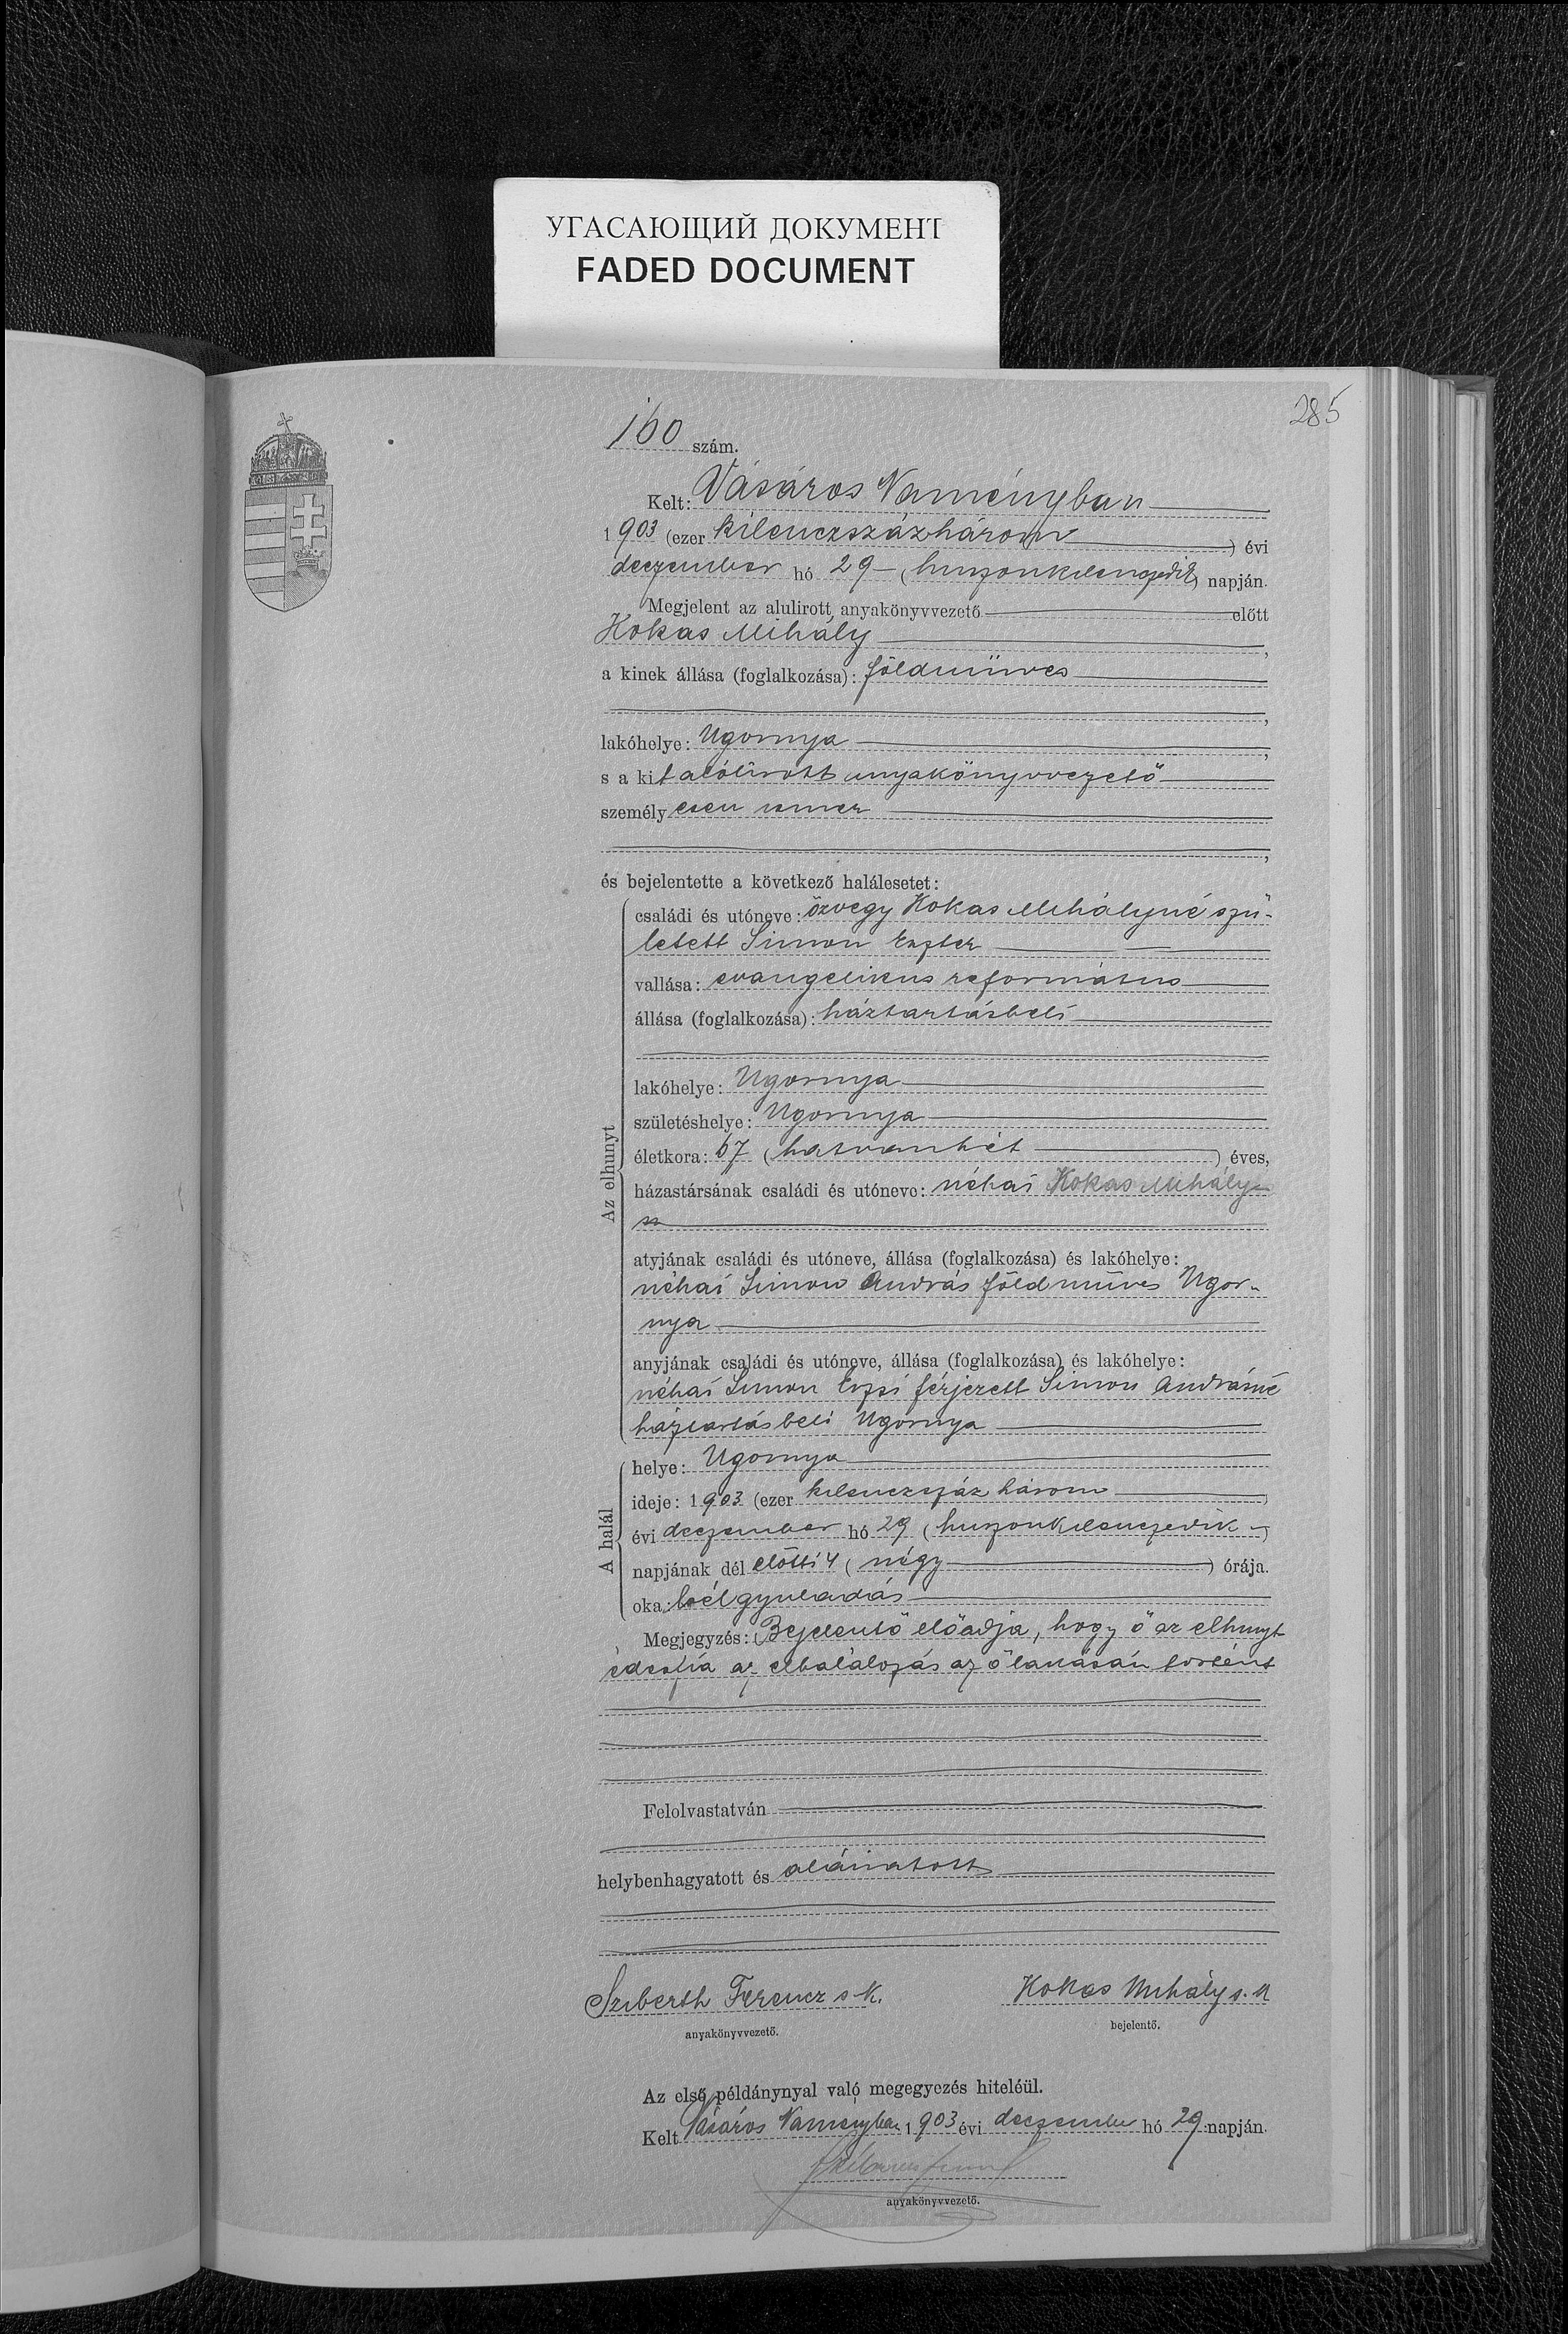 УГАСАЮЩИЙ ДОКУМЕНТ
FADED DOCUMENT
285
160 szám.
Kelt: Vásáros Naményban
1903 (ezer kilenczszázhárom) évi
deczember hó 29 – (huszonkilenczedik) napján.
Megjelent az alulirott anyakönyvvezető előtt
Kokas Mihály,
a kinek állása (foglalkozása): földmüves
,
lakóhelye: Ugornya,
s a kit alólirott anyakönyvvezető
személyesen ismer
,
és bejelentette a következő halálesetet:
Az elhunyt
családi és utóneve: özvegy Kokas Mihályné szü-
letett Simon Eszter
vallása: evangelikus református
állása (foglalkozása): háztartásbeli
lakóhelye: Ugornya
születéshelye: Ugornya
életkora: 67 (hatvanhét) éves,
házastársának családi és utóneve: néhai Kokas Mihály
atyjának családi és utóneve, állása (foglalkozása) és lakóhelye:
néhai Simon András földmüves Ugor-
nya
anyjának családi és utóneve, állása (foglalkozása) és lakóhelye:
néhai Simon Erzsi férjezett Simon Andrásné
háztartásbeli Ugornya
A halál
helye: Ugornya
ideje: 1903 (ezer kilenczszáz három)
évi deczember hó 29 (huszonkilenczedik)
napjának dél előtti 4 (négy) órája.
oka: bélgyuladás
Megjegyzés: Bejelentő előadja, hogy ő az elhunyt
édesfia az elhalálozás az ő lakásán történt
Felolvastatván
helybenhagyatott és aláiratott
Sziberth Ferencz s. k.
anyakönyvvezető.
Kokas Mihály s. k
bejelentő.
Az első példánynyal való megegyezés hiteléül.
Kelt Vásáros Naményban 1903 évi deczember hó 29 napján.
anyakönyvvezető.